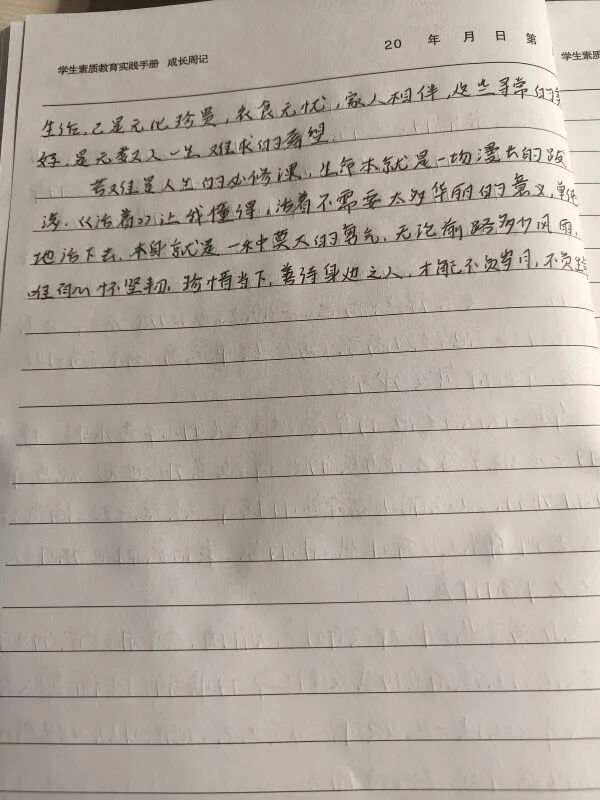 20 年 月 日 第
学生素质教育实践手册 成长周记
学生素
生活,已是无比珍贵,衣食无忧,家人相伴,这些寻常的幸
好,是无数人一生难求的奢望
苦难是人生的必修课,生命本就是一场漫长的跋
涉.《活着》让我懂得,活着不需要太多华丽的意义,单纯
地活下去,本身就是一种莫大的勇气,无论前路多少风雨,
唯有心怀坚韧,珍惜当下,善待身边之人,才能不负岁月,不负生命